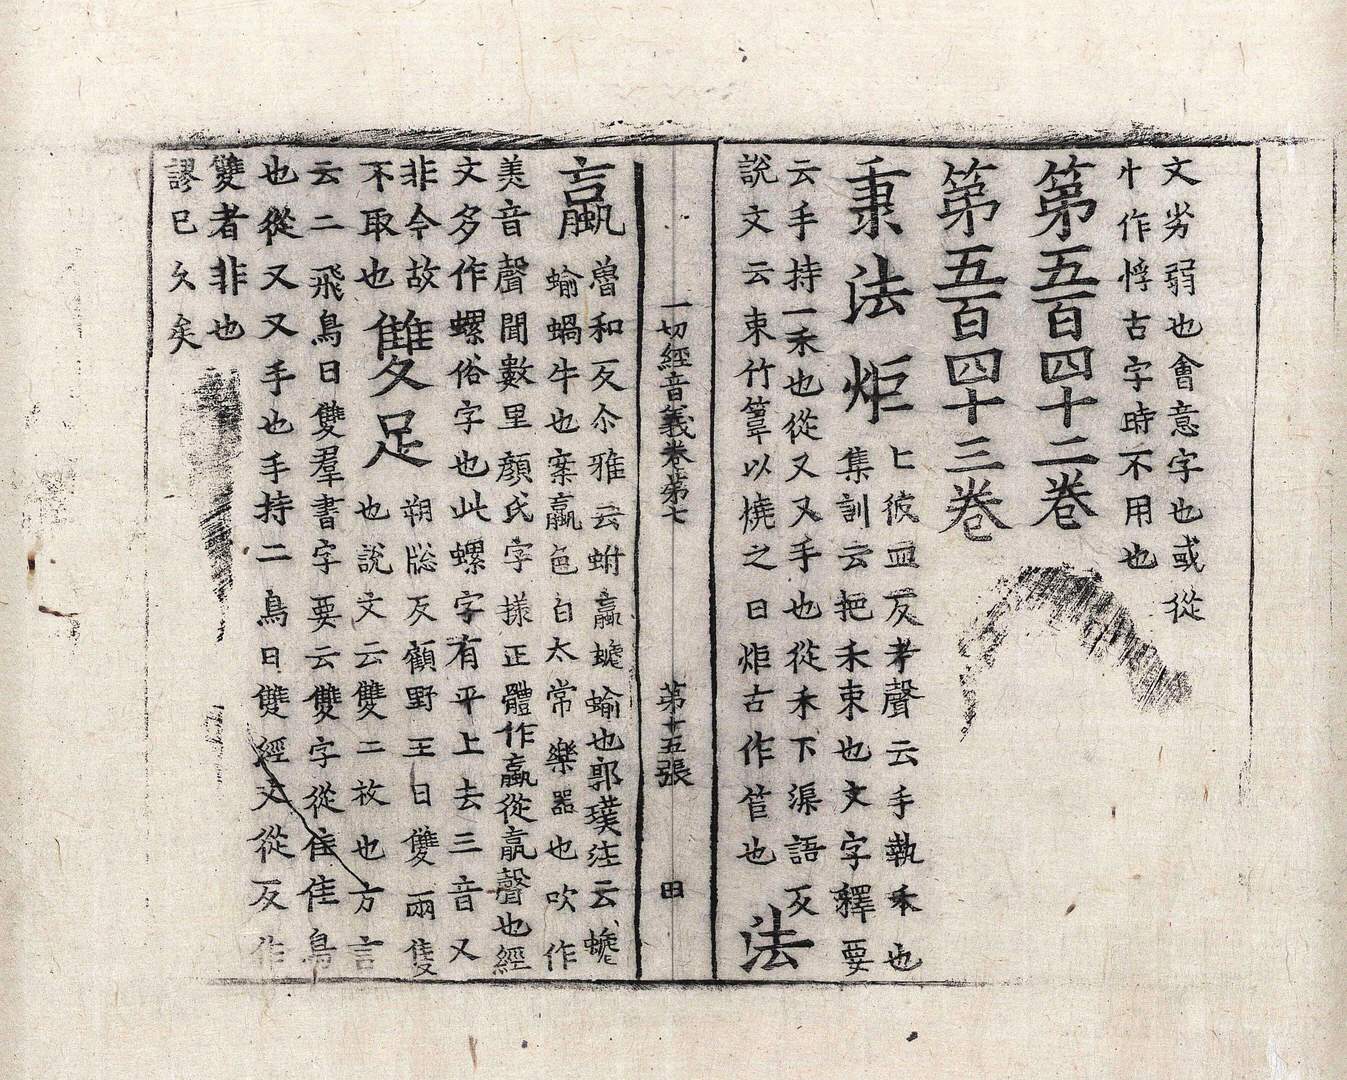 文劣弱也會意字也或從
忄作悙古字時不用也
第五百四十二卷
第五百四十三卷
秉法炬
上彼皿反考聲云手執禾也
集訓云把禾束也文字釋要
云手持一禾也從又又手也從禾下渠語反
說文云束竹葦以燒之曰炬古作苣也
法
一切經音義卷第七
第十五張
田
蠃
魯和反尒雅云蚹蠃螔蝓也郭璞注云螔
蝓蝸牛也案蠃色白太常樂器也吹作
美音聲聞數里顏氏字㨾正體作蠃從𣎆聲也經
文多作螺俗字也此螺字有平上去三音又
非今故
不取也
雙足
朔𦗁反顧野王曰雙兩隻
也說文云雙二故也方言
云二飛鳥曰雙羣書字要云雙字從隹隹鳥
也從又又手也手持二鳥曰雙經文從反作
雙者非也
謬已久矣